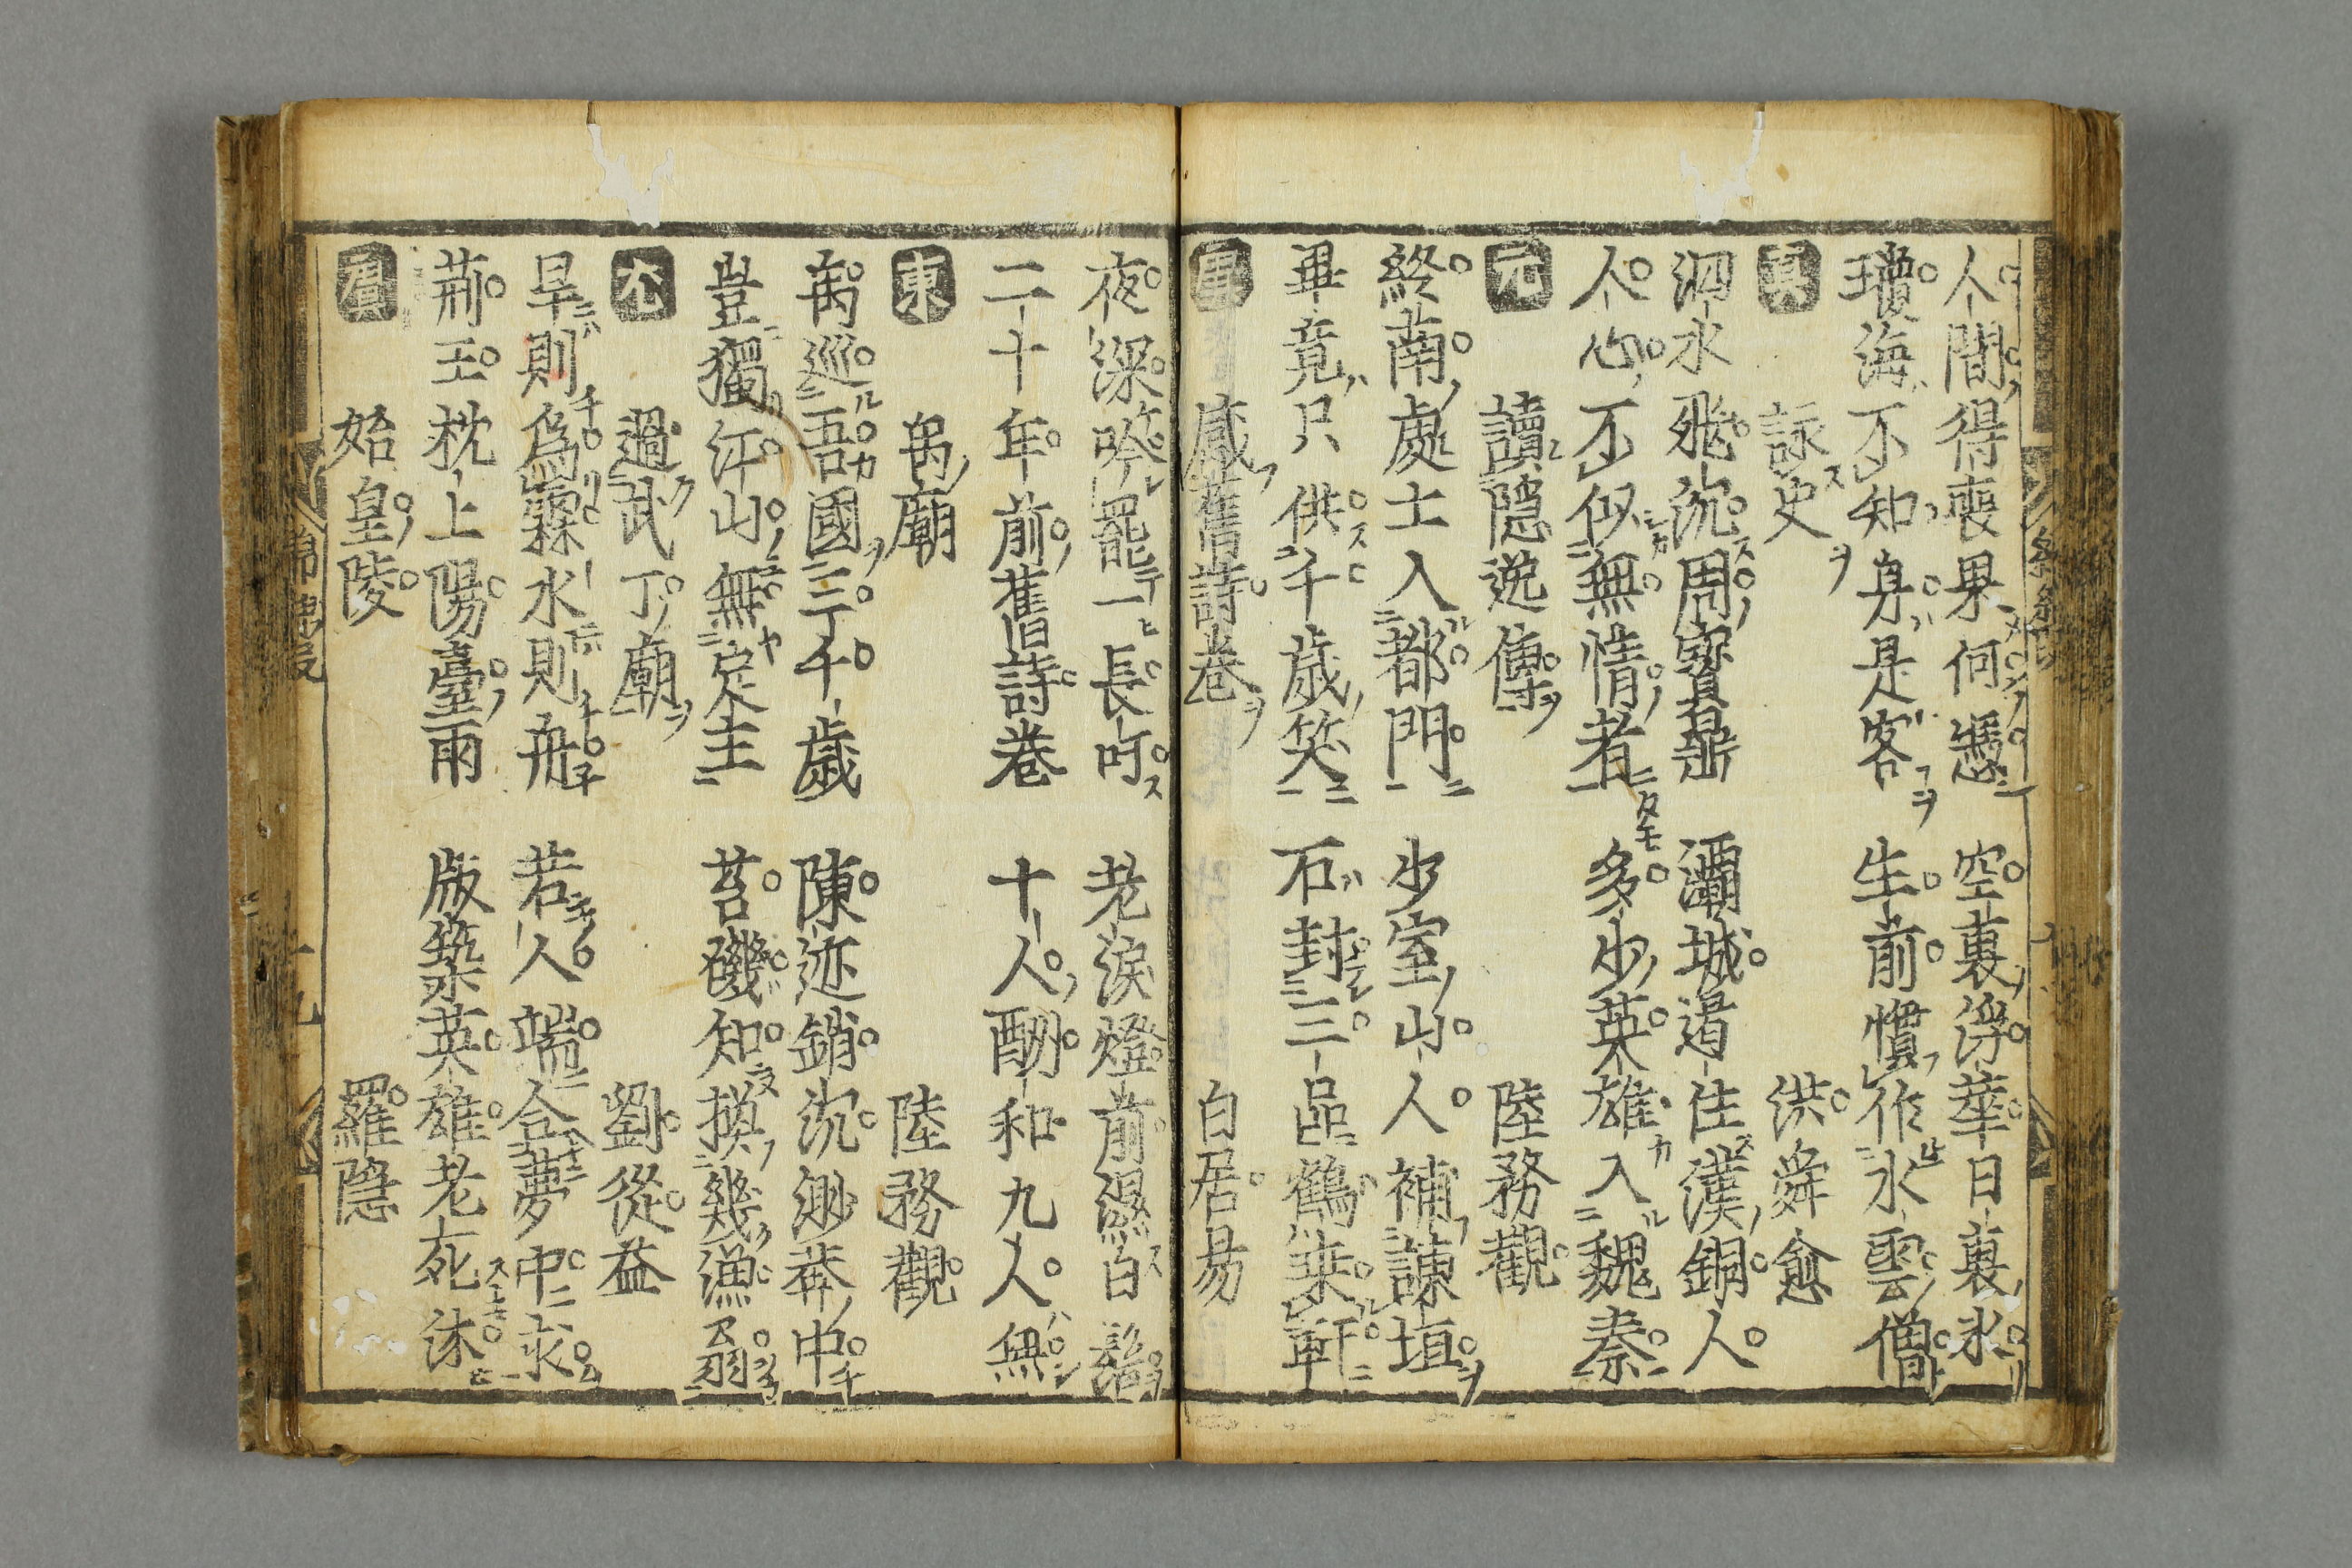 人間得喪果何憑 空裏浮華日裏氷
瓊海不知身是客 生前慣作水雲僧
眞 詠史 洪舜愈
泗水飛沉周寶鼎 灞城遺住漢銅人
人心不似無情者 多少英雄入魏秦
元 讀隠逸傳 陸務觀
終南處士入都門 少室山人補諫垣
畢竟只供千歳笑 石封三品鶴乗軒
感舊詩巻 白居易
夜深吟罷一長吁 老涙燈前濕白鬚
二十年前舊詩巻 十人酬和九人無
東 禹廟 陸務觀
禹巡吾國三千歳 陳迹銷沉渺莽中
豈獨江山無定主 苔磯知換幾漁翁
尤 過武丁廟 劉從益
旱則為霖水則舟 若人端合夢中求
荊王枕上陽臺雨 版築英雄老死休
眞 始皇陵 羅隠